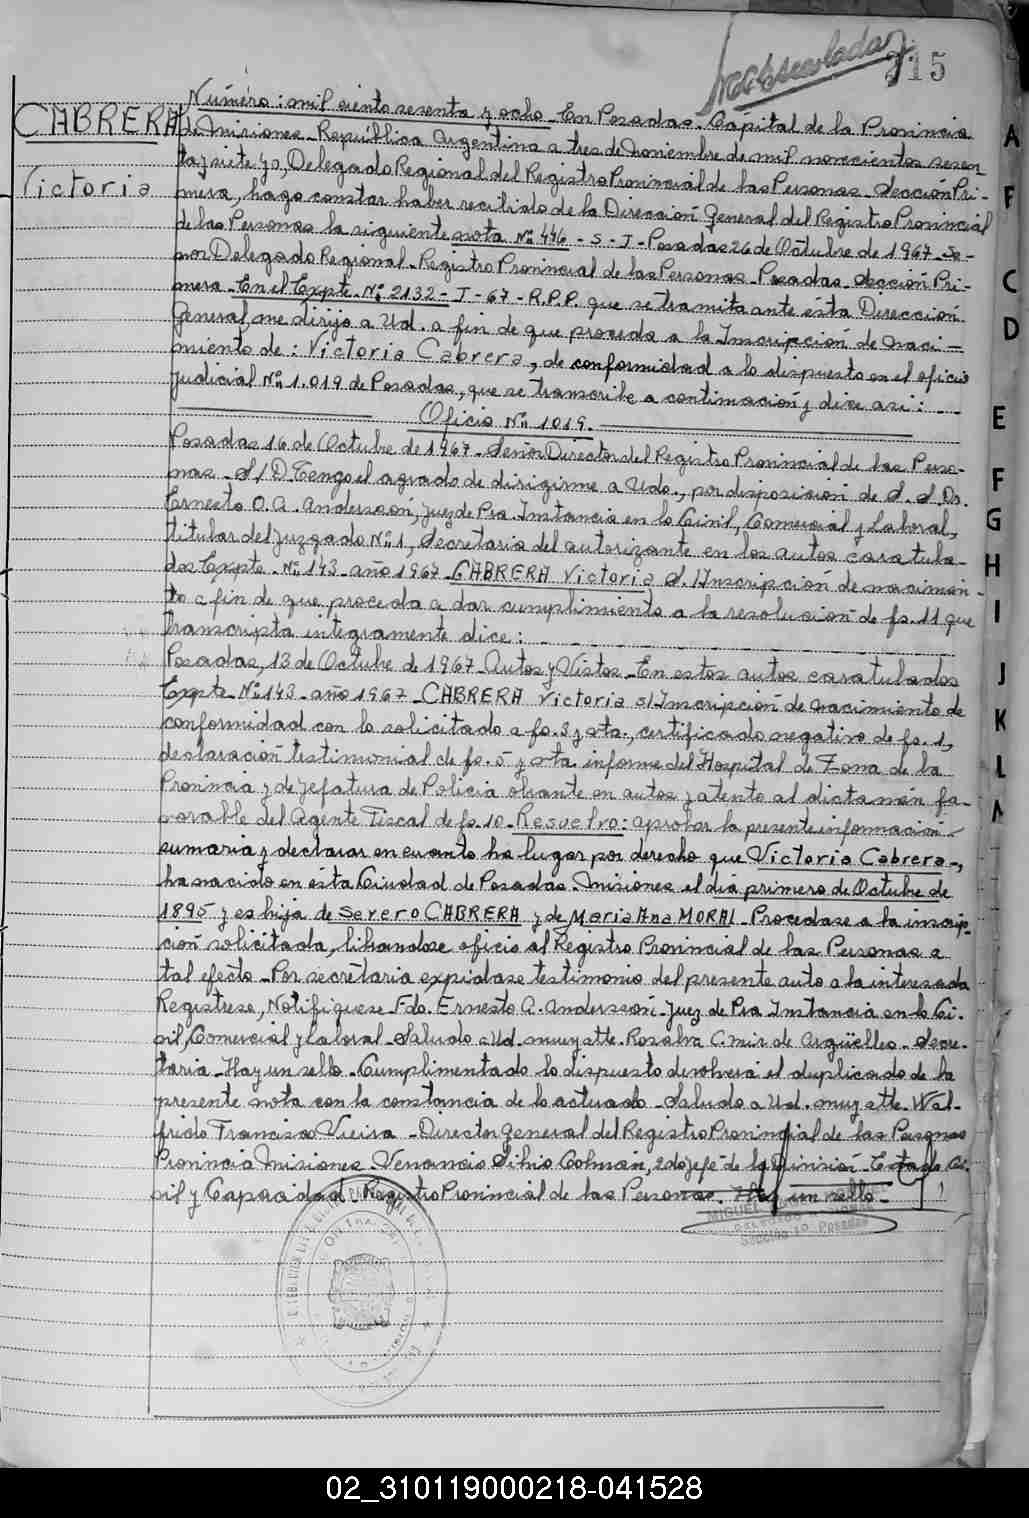 215
CABRERA
Victoria
Número: mil ciento sesenta y ocho. En Posadas. Capital de la Provincia
de Misiones. República Argentina a tres de Noviembre de mil novecientos sesen
ta y siete yo, Delegado Regional del Registro Provincial de las Personas. Sección Pri-
mera, hago constar haber recibido de la Dirección General del Registro Provincial
de las Personas la siguiente nota Nº 446 - S - J - Posadas 26 de Octubre de 1967. Se-
ñor Delegado Regional. Registro Provincial de las Personas. Posadas. Sección Pri-
mera. En el Expte. Nº 2132 - J - 67 - R.P.P. que se tramita ante ésta Dirección
General, me dirijo a Ud. a fin de que proceda a la Inscripción de Naci-
miento de: Victoria Cabrera, de conformidad a lo dispuesto en el oficio
Judicial Nº 1.019 de Posadas, que se transcribe a continuación y dice asi:
Oficio Nº 1019.
Posadas 16 de Octubre de 1967. Señor Director del Registro Provincial de las Perso-
nas. S/D. Tengo el agrado de dirigirme a Uds., por disposición de S. S. Dr.
Ernesto O. A. Andersson, Juez de Pra. Instancia en lo Civil, Comercial y Laboral,
titular del Juzgado Nº 1, Secretaria del autorizante en los autos caratula-
dos Expte. Nº 143 año 1967 CABRERA Victoria S. /Inscripción de nacimien-
to a fin de que proceda a dar cumplimiento a la resolución de fs. 11 que
transcripta integramente dice:
Posadas, 13 de Octubre de 1967. Autos y Vistos. En estos autos caratulados
Expte. Nº 143. año 1967. CABRERA Victoria s/Inscripción de Nacimiento de
conformidad con lo solicitado a fs. 3 y vta., certificado negativo de fs. 1,
declaración testimonial de fs. 5 y vta. informe del Hospital de Zona de la
Provincia y de Jefatura de Policia obrante en autos y atento al dictamén fa-
vorable del Agente Fiscal de fs. 10. Resuelvo: aprobar la presente información
sumaria y declarar en cuanto ha lugar por derecho que Victoria Cabrera.,
ha nacido en ésta Ciudad de Posadas. Misiones el dia primero de Octubre de
1895 y es hija de Severo CABRERA y de Maria Ana MORAL. Procedase a la inscrip-
ción solicitada, librandose oficio al Registro Provincial de las Personas a
tal efecto. Por secretaria expidase testimonio del presente auto a la interesada
Registrese, Notifiquese. Fdo. Ernesto A. Andersson. Juez de Pra Instancia en lo Ci-
vil, Comercial y Laboral. Saludo a Ud. muy atte. Rosalva C. Mir de Argüelles. Secre-
taria. Hay un sello. Cumplimentado lo dispuesto devolverá el duplicado de la
presente nota con la constancia de lo actuado. Saludo a Ud. muy atte. Wal-
frido Francisco Vieira. Director General del Registro Provincial de las Personas
Provincia Misiones. Venancio Silvio Colman, 2do Jefe de la División Estado Ci-
vil y Capacidad. Registro Provincial de las Personas. Hay un sello.
MIGUEL
Sección 1º Posadas
A
F
C
D
E
F
G
H
I
J
K
L
02_310119000218-041528